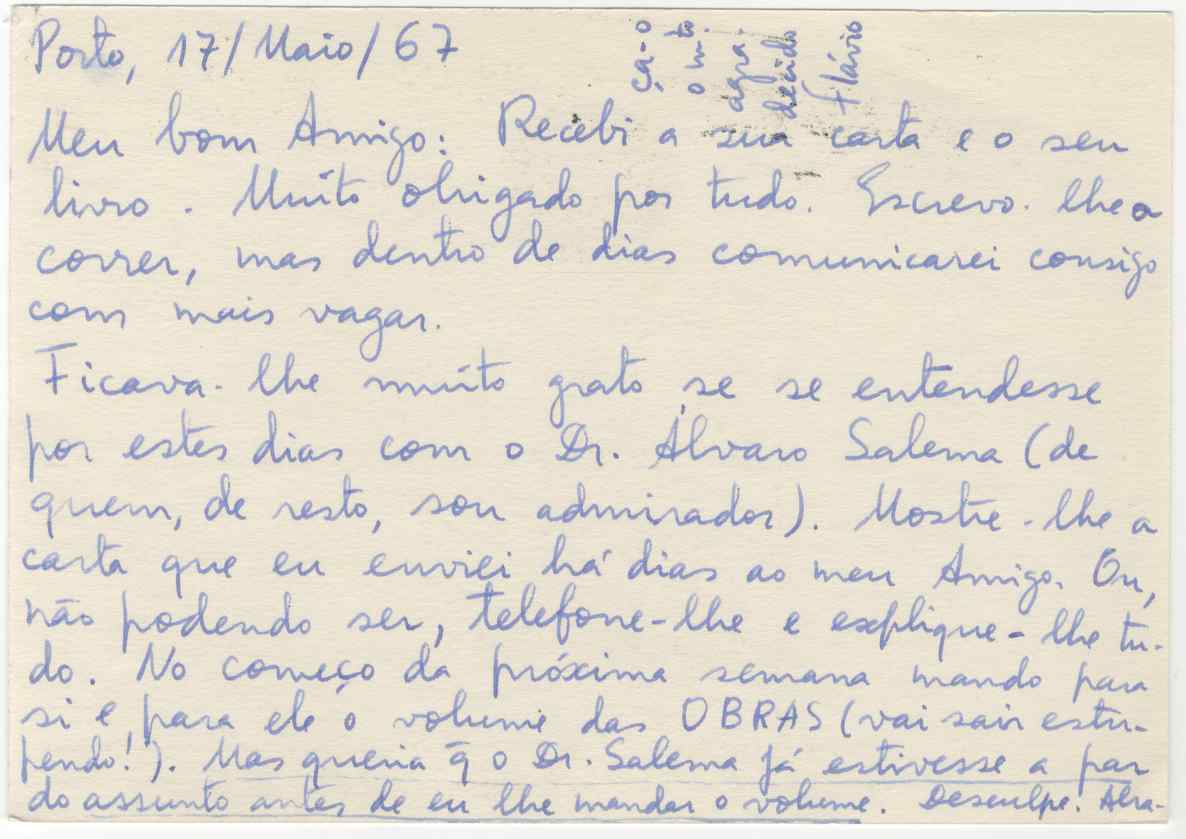 Porto, 17/Maio/67
Meu bom Amigo: Recebi a sua carta e o seu
livro. Muito obrigado por tudo. Escrevo-lhe a
correr, mas dentro de dias comunicarei consigo
com mais vagar.
Ficava-lhe muito grato se se entendesse
por estes dias com o Dr. Álvaro Salema (de
quem, de resto, sou admirador). Mostre-lhe a
carta que eu enviei há dias ao meu Amigo. Ou,
não podendo ser, telefone-lhe e explique-lhe tu-
do. No começo da próxima semana mando para
si e para ele o volume das OBRAS (vai sair estu-
pendo!). Mas queria q̄ o Dr. Salema já estivesse a par
do assunto antes de eu lhe mandar o volume. Desculpe. Abra-
ça-o
o mto
agra-
decido
Flávio